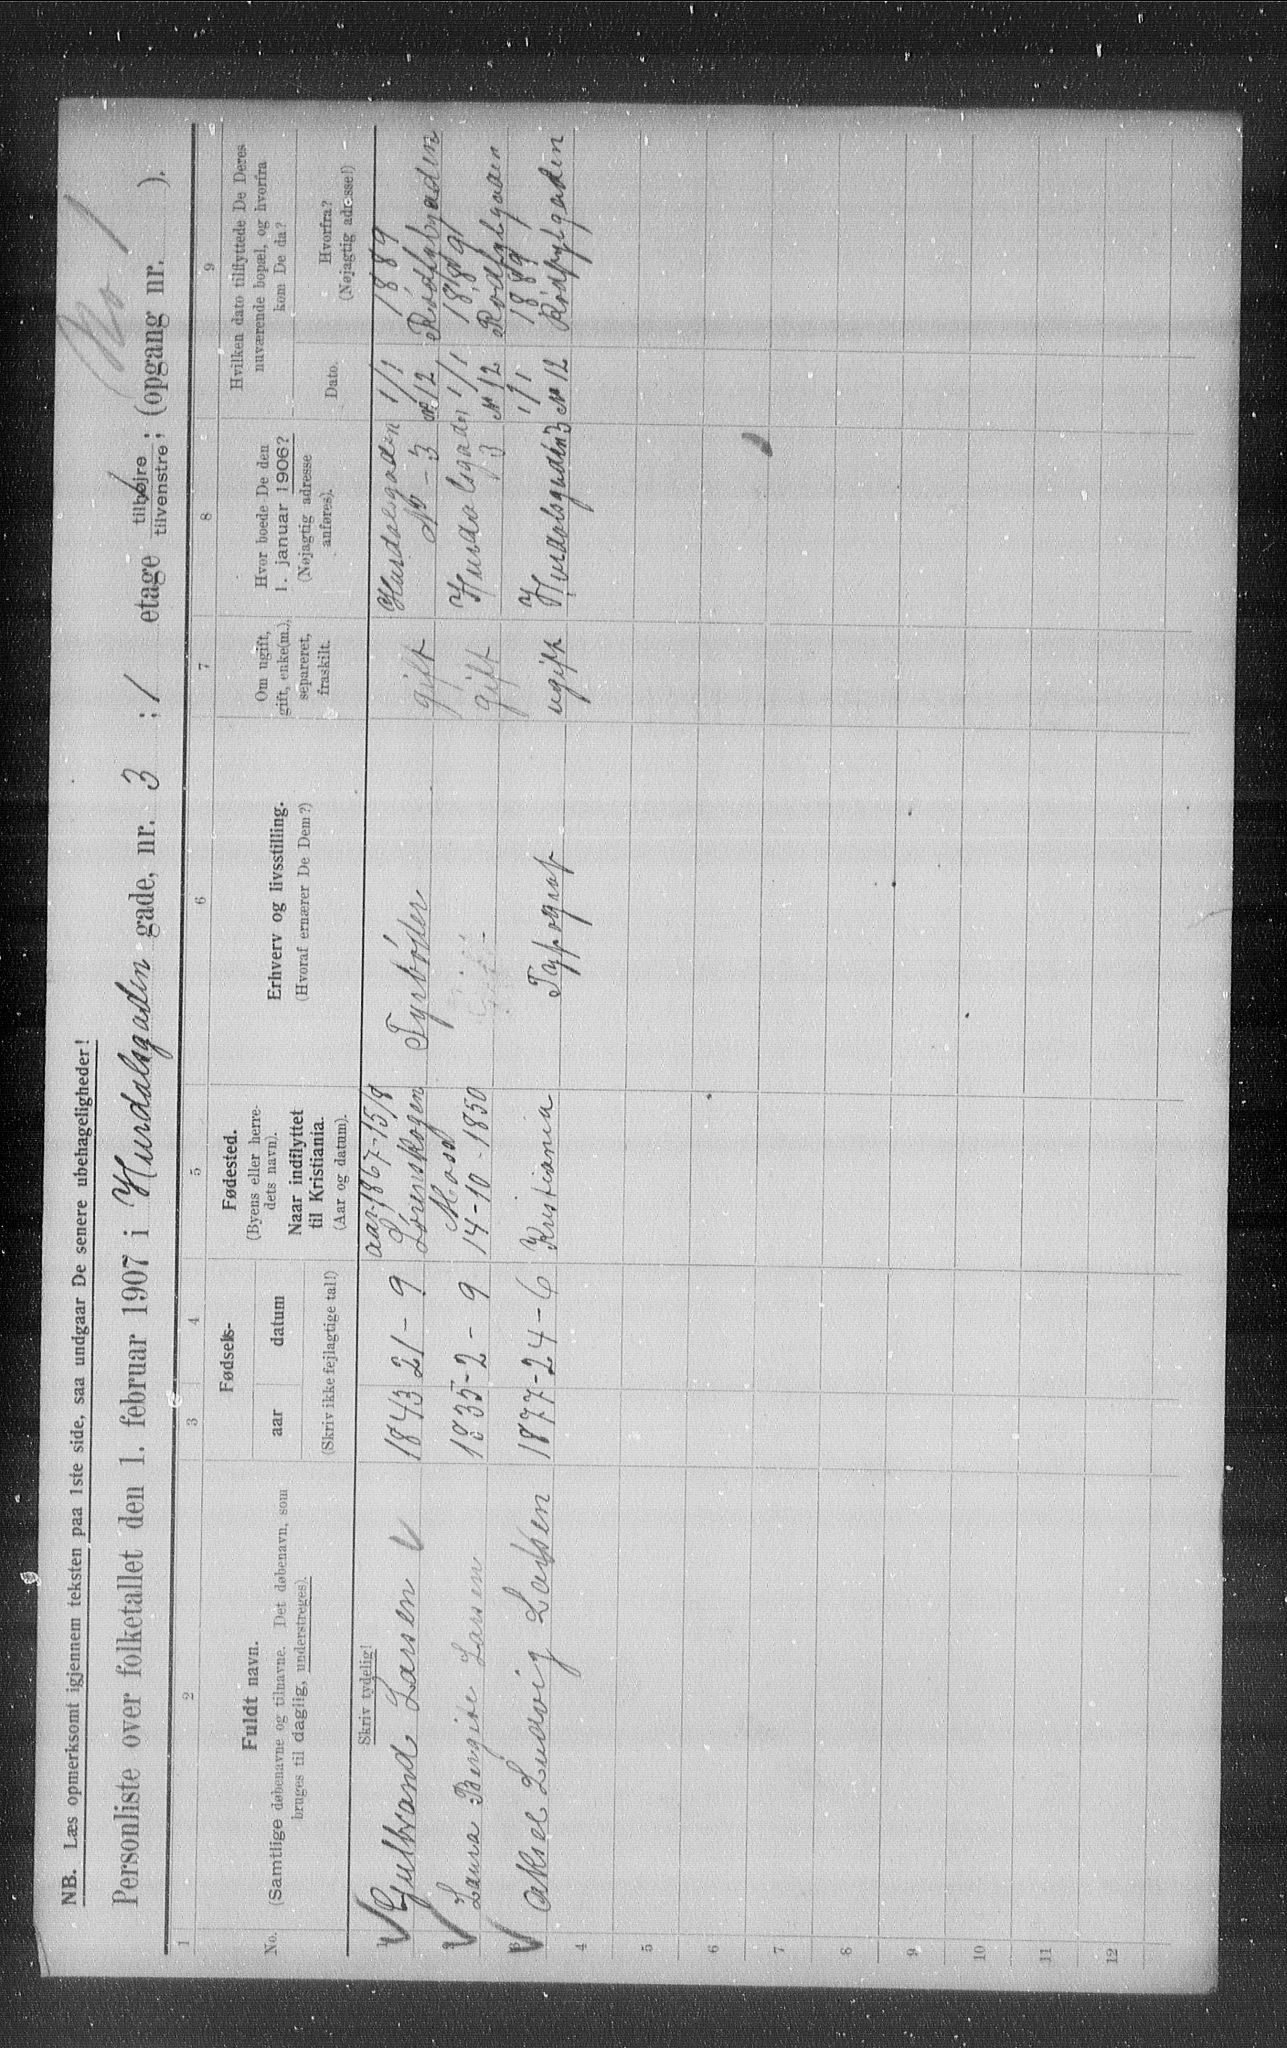 No 1
NB. Læs opmerksomt igjennem teksten paa 1ste side, saa undgaar De senere ubehageligheder!
Personliste over folketallet den 1. februar 1907 i Hurdalsgaden gade, nr. 3 ; 1 etage tilhøjre/tilvenstre; (opgang nr. ).
1 2 3 4 5 6 7 8 9
No.
Fuldt navn.
(Samtlige døbenavne og tilnavne. Det døbenavn, som
bruges til daglig, understreges).
Fødsels-
aar datum
(Skriv ikke fejlagtige tal!)
Fødested.
(Byens eller herre-
dets navn).
Naar indflyttet
til Kristiania.
(Aar og datum).
Erhverv og livsstilling.
(Hvoraf ernærer De Dem?)
Om ugift,
gift, enke(m.),
separeret,
fraskilt.
Hvor boede De den
1. januar 1906?
(Nøjagtig adresse
anføres).
Hvilken dato tilflyttede De Deres
nuværende bopæl, og hvorfra
kom De da?
Dato.
Hvorfra?
(Nøjagtig adresse!)
Skriv tydelig!
aar-1867-15/8 Hurdalsgaden 1/1 1889
Gulbrand Larsen 1843 21 - 9 Lørenskogen Fyrbøder gift No - 3 No 12 Rødfylgaden
Moss Hurdalsgaden 1/1 1889
2 Laura Bergite Larsen 1835 - 2 - 9 14-10-1850 gift 3 No 12 Rødfylgaden
1/1 1889
3 Aksel Ludvig Larsen 1877 - 24 - 6 Kristiania Typograf ugift Hurdalsgaden 3 No 12 Rødfylgaden
4
5
6
7
8
9
10
11
12